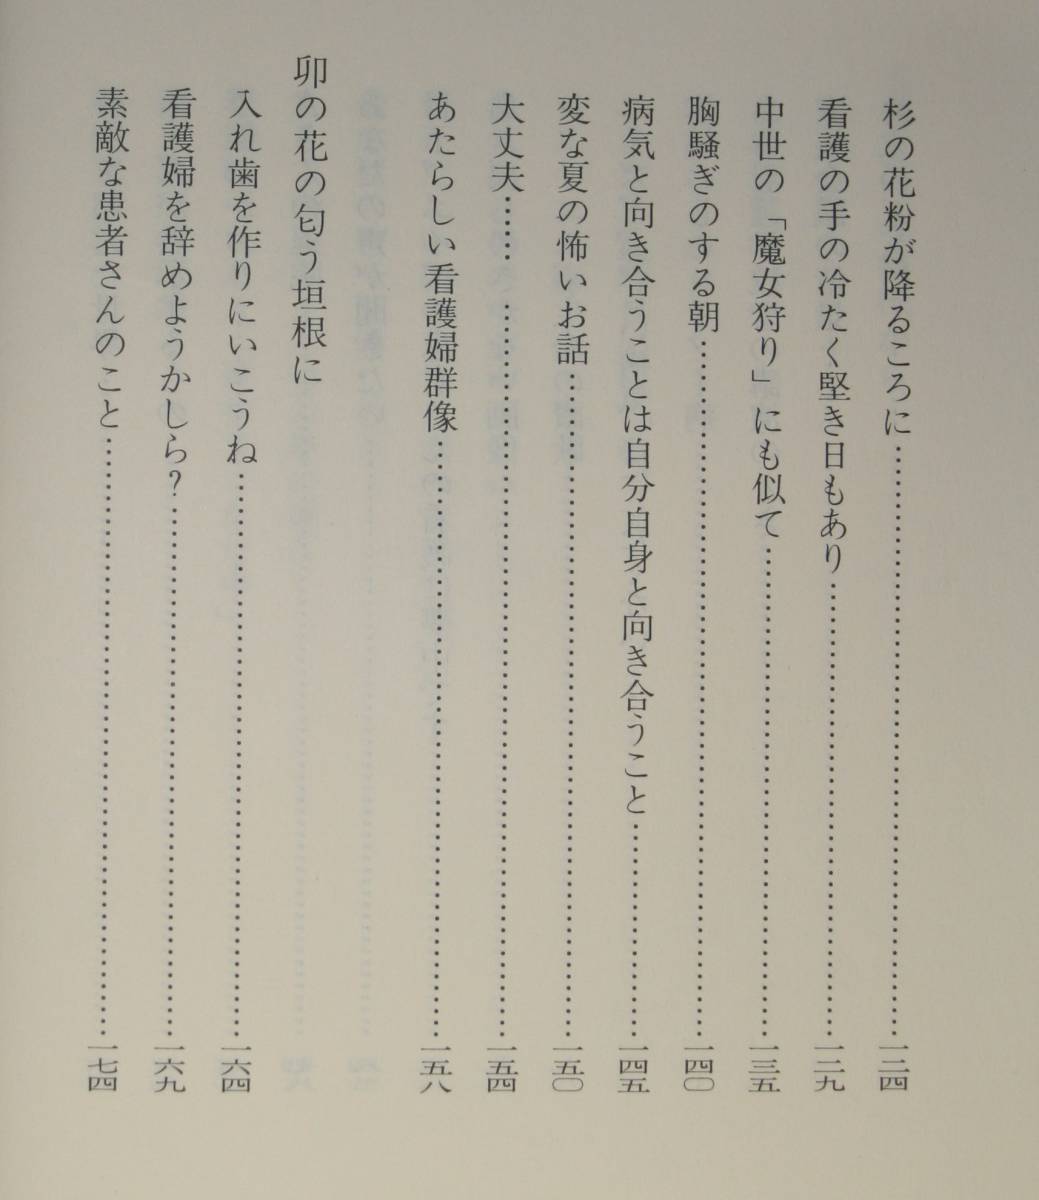 杉の花粉が降るころに……………………………一二四
看護の手の冷たく堅き日もあり……………………一二九
中世の「魔女狩り」にも似て………………………一三五
胸騒ぎのする朝……………………………………一四〇
病気と向き合うことは自分自身と向き合うこと…………一四五
変な夏の怖いお話…………………………………一五〇
大丈夫…… ………………………………………一五四
あたらしい看護婦群像……………………………一五八
卯の花の匂う垣根に
入れ歯を作りにいこうね…………………………一六四
看護婦を辞めようかしら?…………………………一六九
素敵な患者さんのこと……………………………一七四